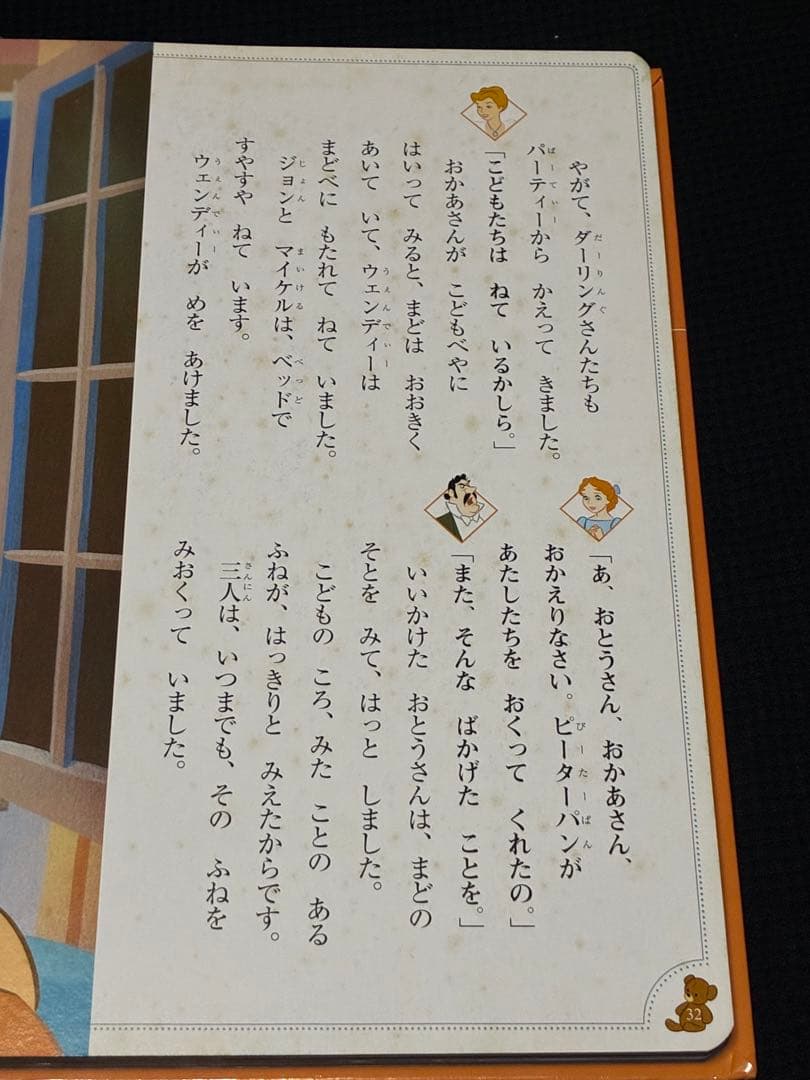 やがて、ダーリングさんたちも
パーティーから かえって きました。
「こどもたちは ねて いるかしら。」
おかあさんが こどもべやに
はいって みると、まどは おおきく
あいて いて、ウェンディーは
まどべに もたれて ねて いました。
ジョンと マイケルは、ベッドで
すやすや ねて います。
ウェンディーが めを あけました。
「あ、おとうさん、おかあさん、
おかえりなさい。ピーターパンが
あたしたちを おくって くれたの。」
「また、そんな ばかげた ことを。」
いいかけた おとうさんは、まどの
そとを みて、はっと しました。
こどもの ころ、みた ことの ある
ふねが、はっきりと みえたからです。
三人は、いつまでも、その ふねを
みおくって いました。
32